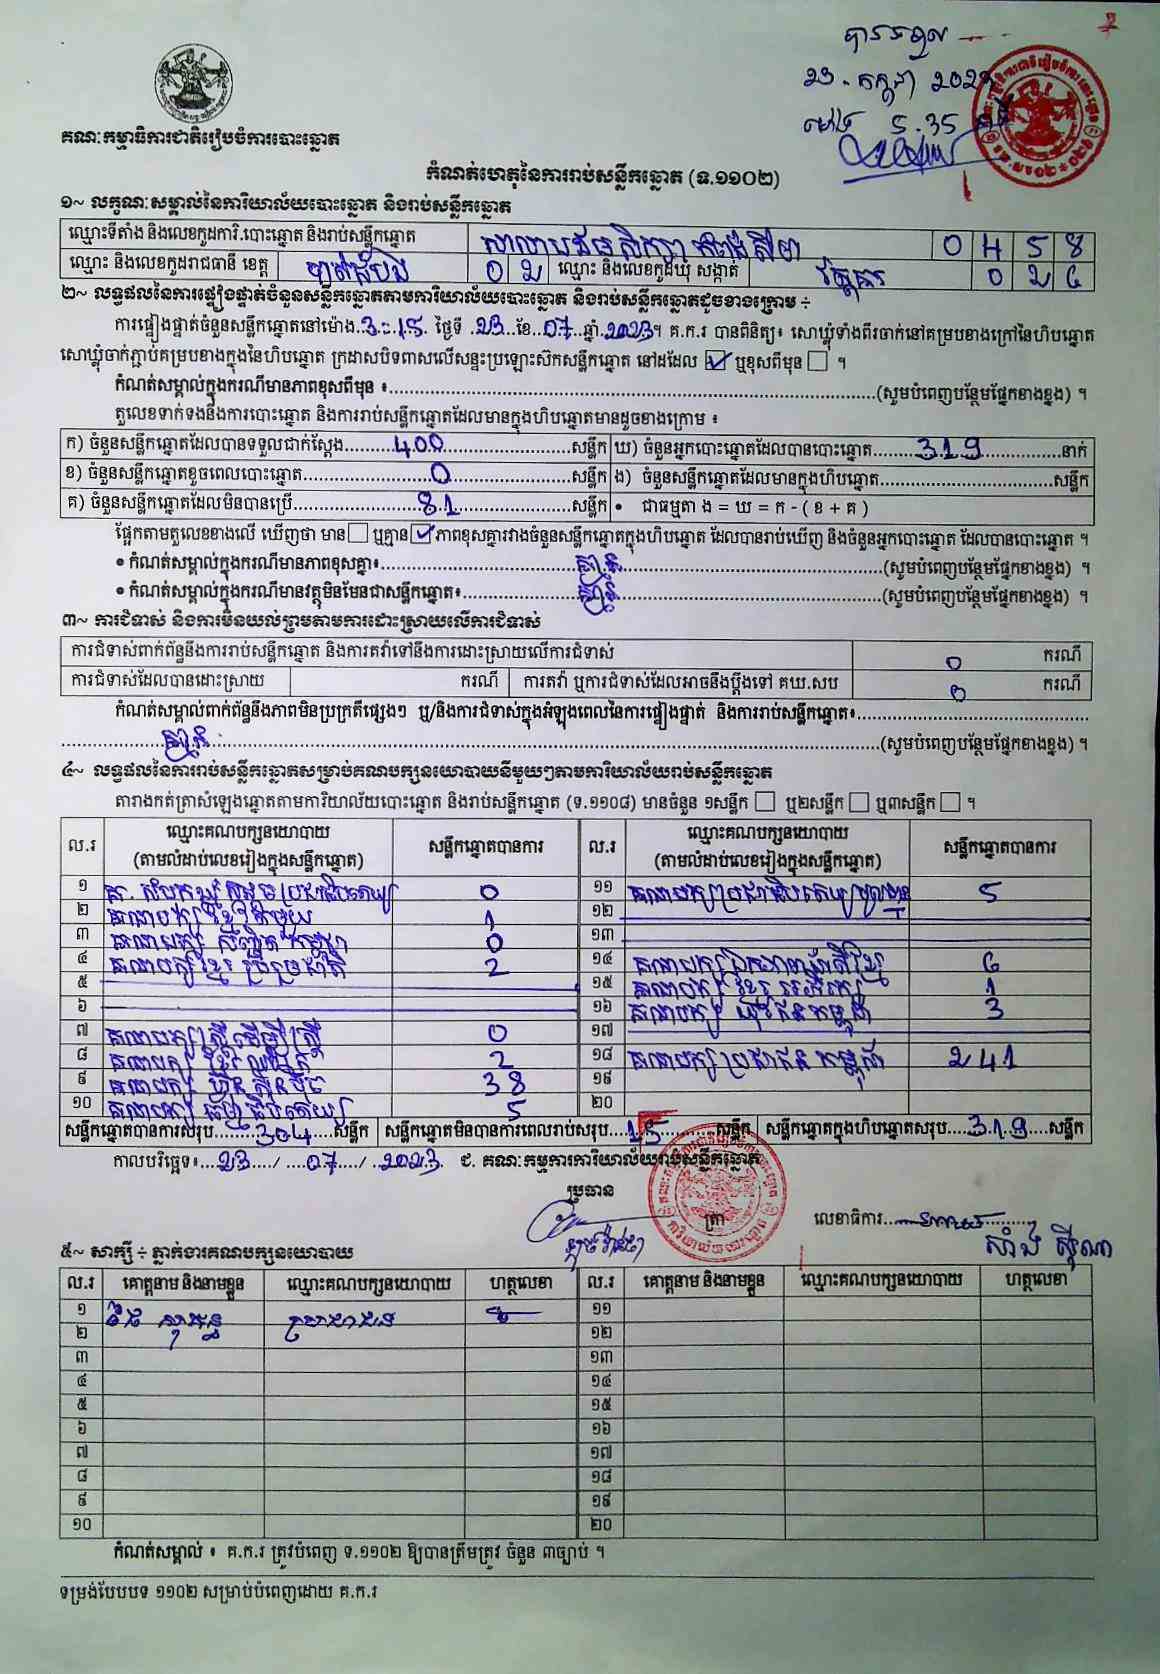 បានទទួល
23. កក្កដា 2023
ម៉ោង 5.35
គណៈកម្មាធិការជាតិរៀបចំការបោះឆ្នោត
កំណត់ហេតុនៃការរាប់សន្លឹកឆ្នោត (ទ.១១០២)
១~ លក្ខណៈសម្គាល់នៃការិយាល័យបោះឆ្នោត និងរាប់សន្លឹកឆ្នោត
ឈ្មោះទីតាំង និងលេខកូដការិ.បោះឆ្នោត និងរាប់សន្លឹកឆ្នោត សាលាបឋមសិក្សា កំពង់សីមា 0 4 5 8
ឈ្មោះ និងលេខកូដរាជធានី ខេត្ត បាត់ដំបង 0 2 ឈ្មោះ និងលេខកូដឃុំ សង្កាត់ វត្តគរ 0 2 4
២~ លទ្ធផលនៃការផ្ទៀងផ្ទាត់ចំនួនសន្លឹកឆ្នោតតាមការិយាល័យបោះឆ្នោត និងរាប់សន្លឹកឆ្នោតដូចខាងក្រោម ÷
ការផ្ទៀងផ្ទាត់ចំនួនសន្លឹកឆ្នោតនៅម៉ោង 3:15 ថ្ងៃទី 23 ខែ 07 ឆ្នាំ 2023។ គ.ក.រ បានពិនិត្យ៖ សោឃ្លុំទាំងពីរចាក់នៅគម្របខាងក្រៅនៃហិបឆ្នោត
សោឃ្លុំចាក់ភ្ជាប់គម្របខាងក្នុងនៃហិបឆ្នោត ក្រដាសបិទពាសលើសន្ទះប្រឡោះស៊កសន្លឹកឆ្នោត នៅដដែល ☑ ឬខុសពីមុន ☐ ។
កំណត់សម្គាល់ក្នុងករណីមានភាពខុសពីមុន ៖ (សូមបំពេញបន្ថែមផ្នែកខាងខ្នង) ។
តួលេខទាក់ទងនឹងការបោះឆ្នោត និងការរាប់សន្លឹកឆ្នោតដែលមានក្នុងហិបឆ្នោតមានដូចខាងក្រោម ៖
ក) ចំនួនសន្លឹកឆ្នោតដែលបានទទួលជាក់ស្តែង 400 សន្លឹក ឃ) ចំនួនអ្នកបោះឆ្នោតដែលបានបោះឆ្នោត 319 នាក់
ខ) ចំនួនសន្លឹកឆ្នោតខូចពេលបោះឆ្នោត 0 សន្លឹក ង) ចំនួនសន្លឹកឆ្នោតដែលមានក្នុងហិបឆ្នោត សន្លឹក
គ) ចំនួនសន្លឹកឆ្នោតដែលមិនបានប្រើ 81 សន្លឹក • ជាធម្មតា ង = ឃ = ក - ( ខ + គ )
ផ្អែកតាមតួលេខខាងលើ ឃើញថា មាន ☐ ឬគ្មាន ☑ ភាពខុសគ្នារវាងចំនួនសន្លឹកឆ្នោតក្នុងហិបឆ្នោត ដែលបានរាប់ឃើញ និងចំនួនអ្នកបោះឆ្នោត ដែលបានបោះឆ្នោត ។
• កំណត់សម្គាល់ក្នុងករណីមានភាពខុសគ្នា៖ គ្មាន (សូមបំពេញបន្ថែមផ្នែកខាងខ្នង) ។
• កំណត់សម្គាល់ក្នុងករណីមានវត្ថុមិនមែនជាសន្លឹកឆ្នោត៖ គ្មាន (សូមបំពេញបន្ថែមផ្នែកខាងខ្នង) ។
៣~ ការជំទាស់ និងការមិនយល់ព្រមតាមការដោះស្រាយលើការជំទាស់
ការជំទាស់ពាក់ព័ន្ធនឹងការរាប់សន្លឹកឆ្នោត និងការតវ៉ាទៅនឹងការដោះស្រាយលើការជំទាស់ 0 ករណី
ការជំទាស់ដែលបានដោះស្រាយ ករណី ការតវ៉ា ឬការជំទាស់ដែលអាចនឹងប្តឹងទៅ គឃ.សប 0 ករណី
កំណត់សម្គាល់ពាក់ព័ន្ធនឹងភាពមិនប្រក្រតីផ្សេងៗ ឬ/និងការជំទាស់ក្នុងអំឡុងពេលនៃការផ្ទៀងផ្ទាត់ និងការរាប់សន្លឹកឆ្នោត៖
គ្មាន (សូមបំពេញបន្ថែមផ្នែកខាងខ្នង) ។
៤~ លទ្ធផលនៃការរាប់សន្លឹកឆ្នោតសម្រាប់គណបក្សនយោបាយនីមួយៗតាមការិយាល័យរាប់សន្លឹកឆ្នោត
តារាងកត់ត្រាសំឡេងឆ្នោតតាមការិយាល័យបោះឆ្នោត និងរាប់សន្លឹកឆ្នោត (ទ.១១០៨) មានចំនួន ១សន្លឹក ☐ ឬ២សន្លឹក ☐ ឬ៣សន្លឹក ☐ ។
ល.រ ឈ្មោះគណបក្សនយោបាយ (តាមលំដាប់លេខរៀងក្នុងសន្លឹកឆ្នោត) សន្លឹកឆ្នោតបានការ ល.រ ឈ្មោះគណបក្សនយោបាយ (តាមលំដាប់លេខរៀងក្នុងសន្លឹកឆ្នោត) សន្លឹកឆ្នោតបានការ
១ គ. សំបុកឃ្មុំសង្គមប្រជាធិបតេយ្យ 0 ១១ គណបក្សប្រជាធិបតេយ្យមូលដ្ឋាន 5
២ គណបក្សខ្មែរតែមួយ 1 ១២
៣ គណបក្ស កម្ពុជា 0 ១៣
៤ គណបក្សខ្មែរ ជាតិ 2 ១៤ គណបក្សឯកភាពជាតិខ្មែរ 6
៥ ១៥ គណបក្ស ខ្មែរ អភិរក្ស 1
៦ ១៦ គណបក្ស យុវជនកម្ពុជា 3
៧ គណបក្សស្ត្រីដើម្បីស្ត្រី 0 ១៧
៨ គណបក្ស ខ្មែរ 2 ១៨ គណបក្សប្រជាជនកម្ពុជា 241
៩ គណបក្ស ហ៊្វុនស៊ិនប៉ិច 38 ១៩
១០ គណបក្ស ធម្មាធិបតេយ្យ 5 ២០
សន្លឹកឆ្នោតបានការសរុប 304 សន្លឹក សន្លឹកឆ្នោតមិនបានការពេលរាប់សរុប 15 សន្លឹក សន្លឹកឆ្នោតក្នុងហិបឆ្នោតសរុប 319 សន្លឹក
កាលបរិច្ឆេទ៖ 23 / 07 / 2023 ជ. គណៈកម្មការការិយាល័យរាប់សន្លឹកឆ្នោត
ប្រធាន
ត្រា លេខាធិការ
៥~ សាក្សី ÷ ភ្នាក់ងារគណបក្សនយោបាយ
ល.រ គោត្តនាម និងនាមខ្លួន ឈ្មោះគណបក្សនយោបាយ ហត្ថលេខា ល.រ គោត្តនាម និងនាមខ្លួន ឈ្មោះគណបក្សនយោបាយ ហត្ថលេខា
១ ប្រជាជន ១១
២ ១២
៣ ១៣
៤ ១៤
៥ ១៥
៦ ១៦
៧ ១៧
៨ ១៨
៩ ១៩
១០ ២០
កំណត់សម្គាល់ ៖ គ.ក.រ ត្រូវបំពេញ ទ.១១០២ ឱ្យបានត្រឹមត្រូវ ចំនួន ៣ច្បាប់ ។
ទម្រង់បែបបទ ១១០២ សម្រាប់បំពេញដោយ គ.ក.រ